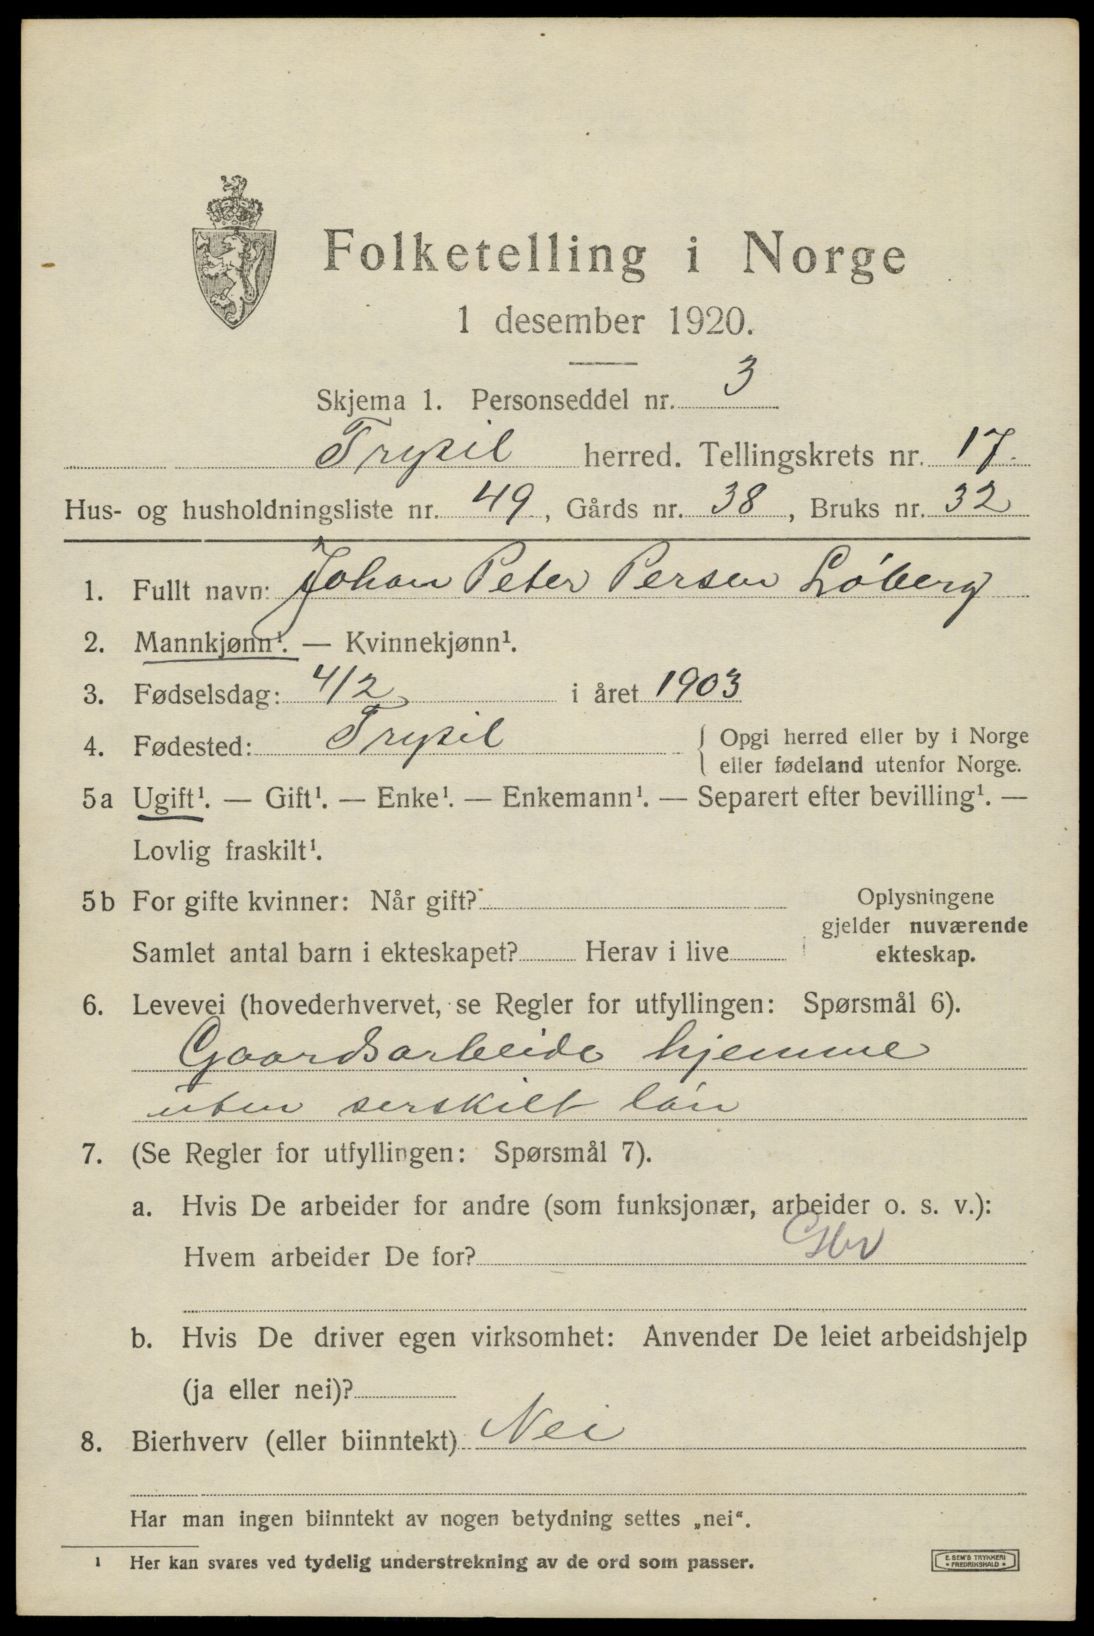 Folketelling i Norge
1 desember 1920.
Skjema 1. Personseddel nr. 3
Trysil herred. Tellingskrets nr. 17.
Hus- og husholdningsliste nr. 49, Gårds nr. 38, Bruks nr. 32
1. Fullt navn: Johan Peter Persen Løberg
2. Mannkjønn¹. — Kvinnekjønn¹.
3. Fødselsdag: 4/2 i året 1903
4. Fødested: Trysil { Opgi herred eller by i Norge
eller fødeland utenfor Norge.
5a Ugift¹. — Gift¹. — Enke¹. — Enkemann¹. — Separert efter bevilling¹. —
Lovlig fraskilt¹.
5b For gifte kvinner: Når gift?
Samlet antal barn i ekteskapet? Herav i live
Oplysningene
gjelder nuværende
ekteskap.
6. Levevei (hovederhvervet, se Regler for utfyllingen: Spørsmål 6).
Gaardsarbeide hjemme
uten serskilt løn
7. (Se Regler for utfyllingen: Spørsmål 7).
a. Hvis De arbeider for andre (som funksjonær, arbeider o. s. v.):
Hvem arbeider De for?
b. Hvis De driver egen virksomhet: Anvender De leiet arbeidshjelp
(ja eller nei)?
8. Bierhverv (eller biinntekt) Nei
Har man ingen biinntekt av nogen betydning settes „nei“.
¹ Her kan svares ved tydelig understrekning av de ord som passer.
E. SEM'S TRYKKERI
* FREDRIKSHALD *